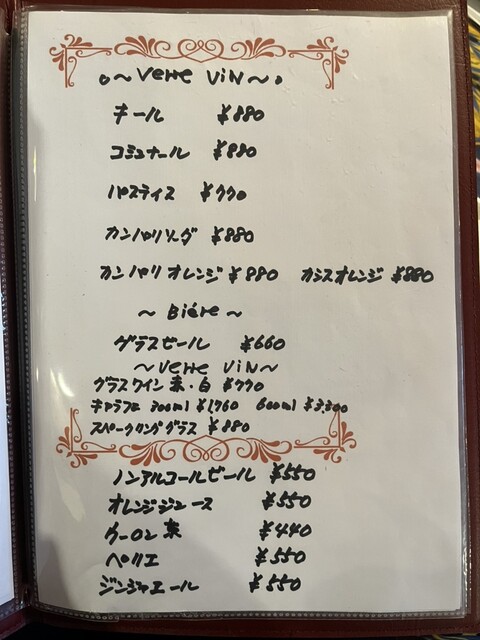 ~ Verre Vin ~
キール ¥880
コミュナール ¥880
パスティス ¥770
カンパリソーダ ¥880
カンパリオレンジ ¥880 カシスオレンジ ¥880
~ Biére ~
グラスビール ¥660
~ Verre Vin ~
グラスワイン 赤・白 ¥770
キャラフェ 300ml ¥1,760 600ml ¥3,300
スパークリンググラス ¥880
ノンアルコールビール ¥550
オレンジジュース ¥550
ウーロン茶 ¥440
ペリエ ¥550
ジンジャエール ¥550